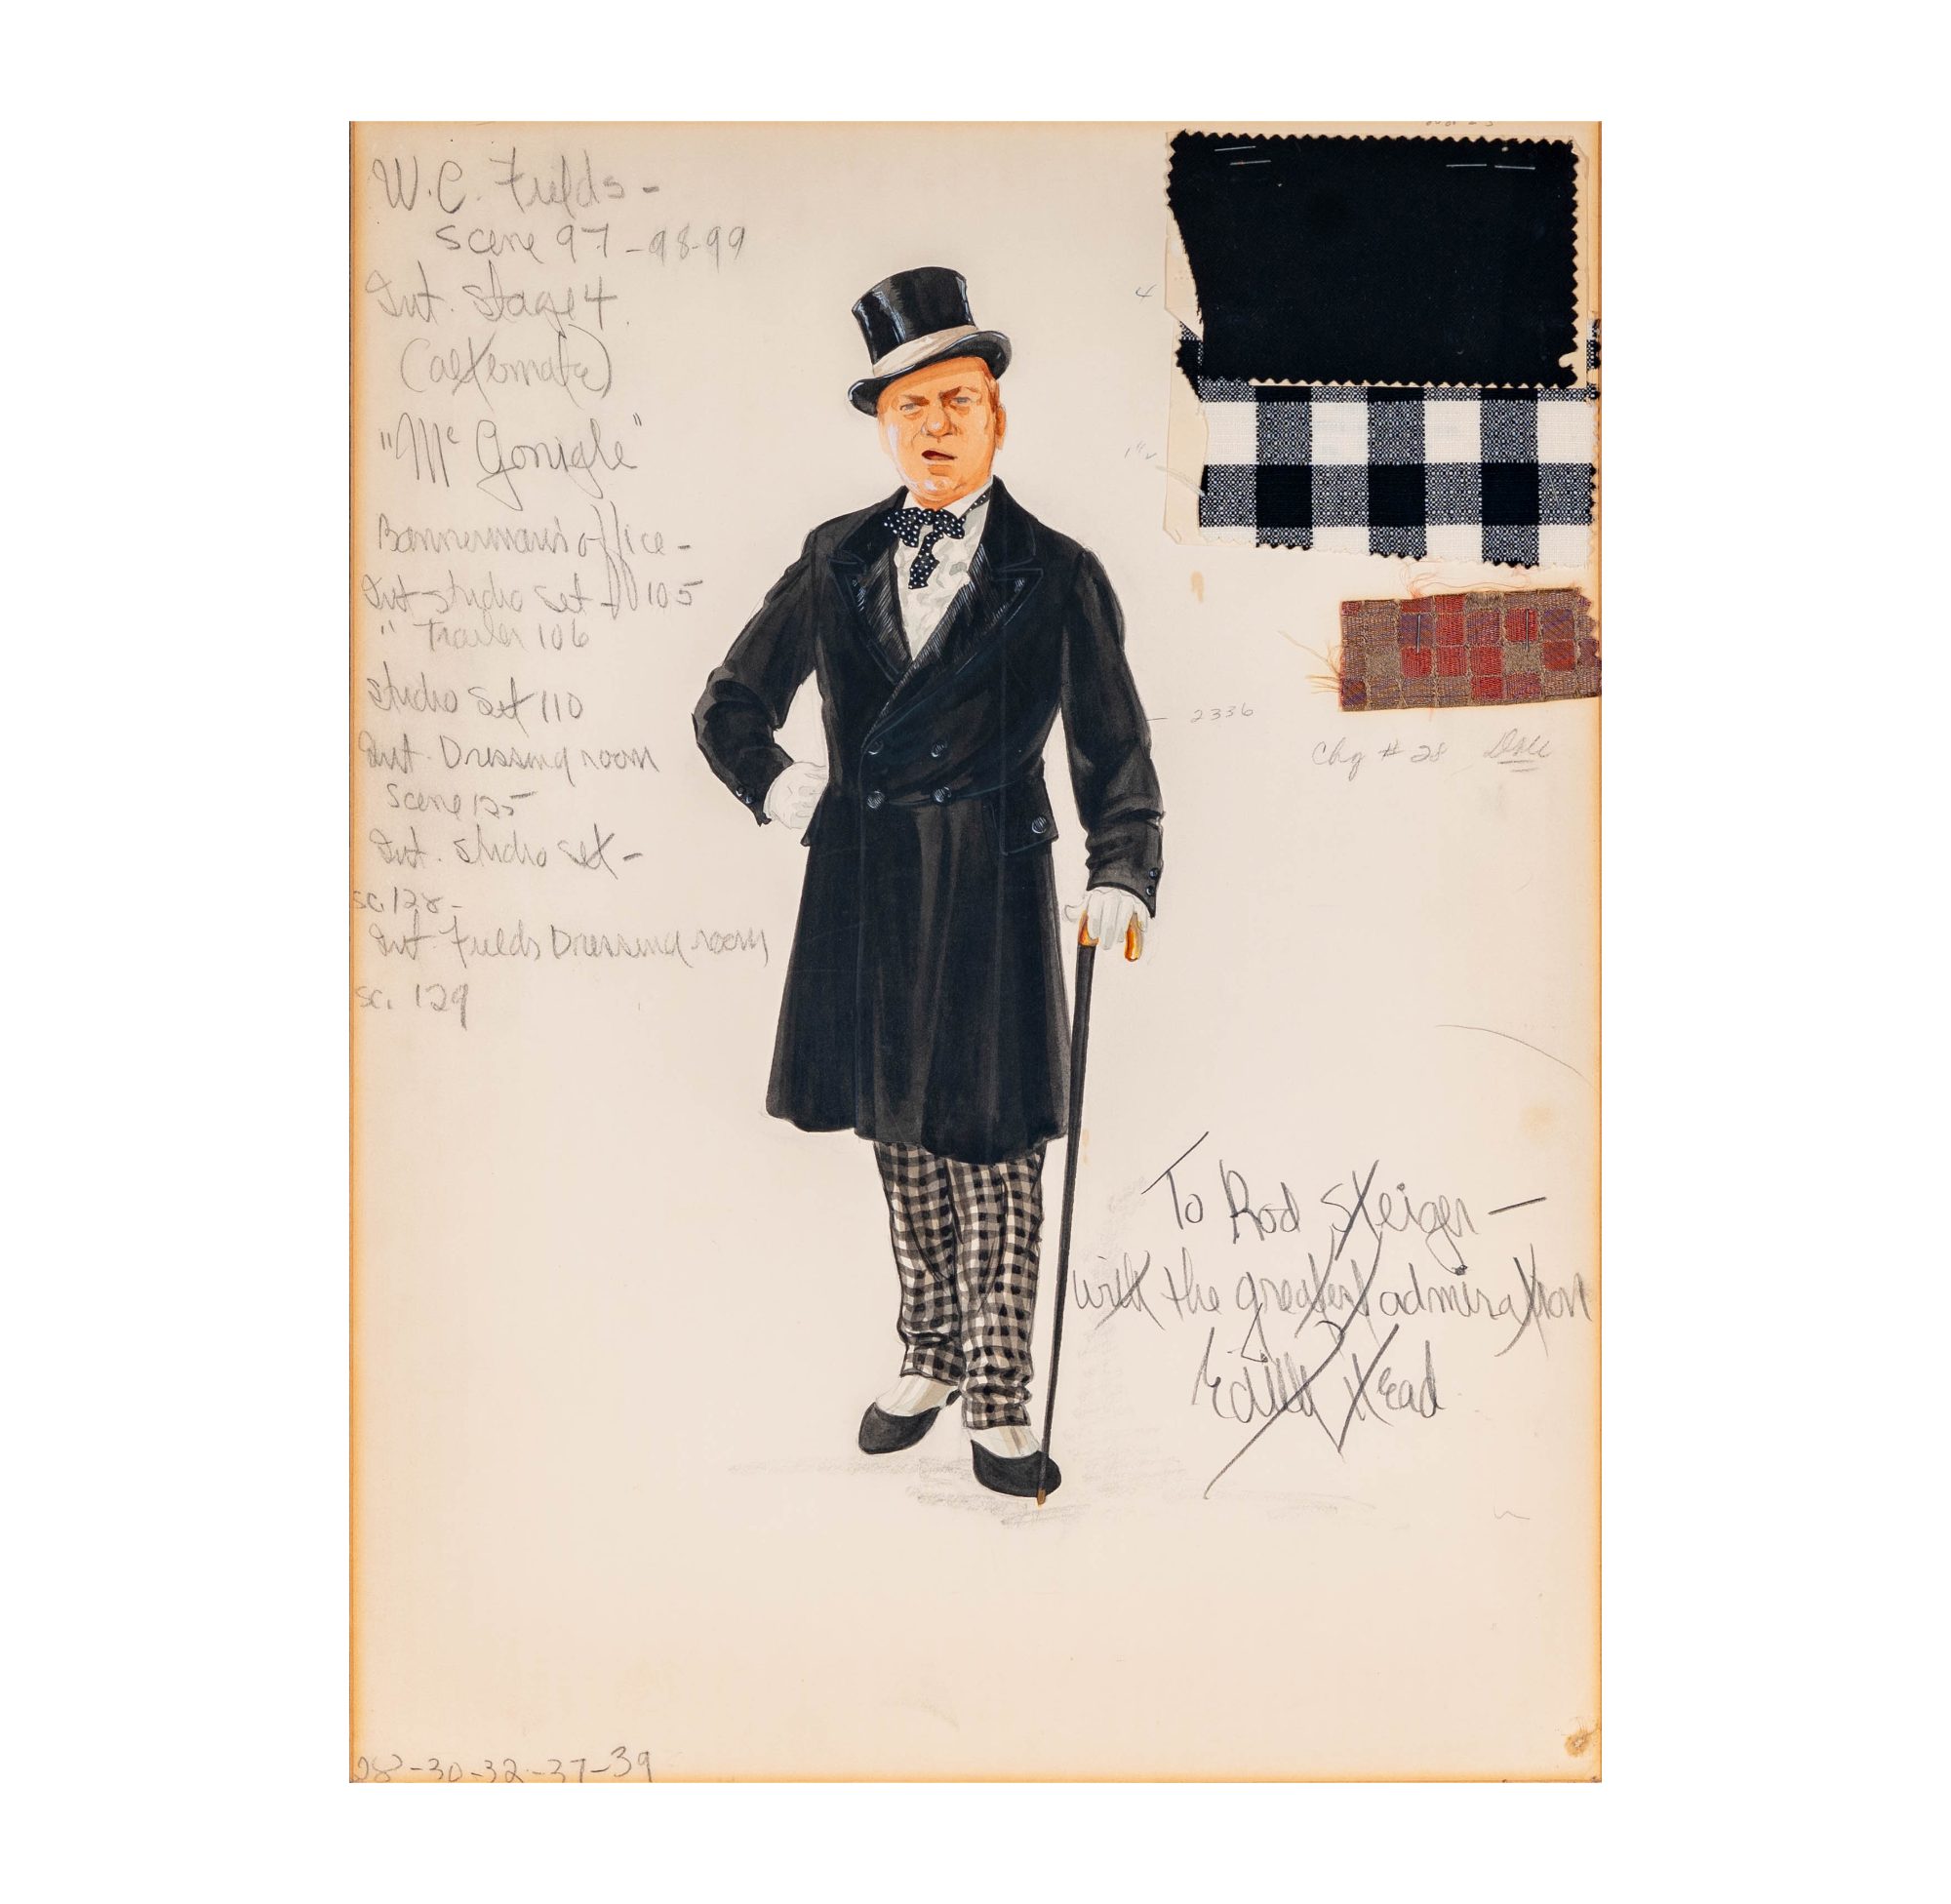 W.C. Fields -
Scene 97-98-99
Int. Stage 4
(alternate)
"Mc Gonigle"
Bannerman's office -
Int studio set - 105
" Trailer 106
Studio Set 110
Int. Dressing room
Scene 125
Int. Studio set -
sc. 128 -
Int. Fields Dressing room
sc. 129
4
2336
Chg # 28
To Rod Steiger -
with the greatest admiration
Edith Head
28-30-32-37-39